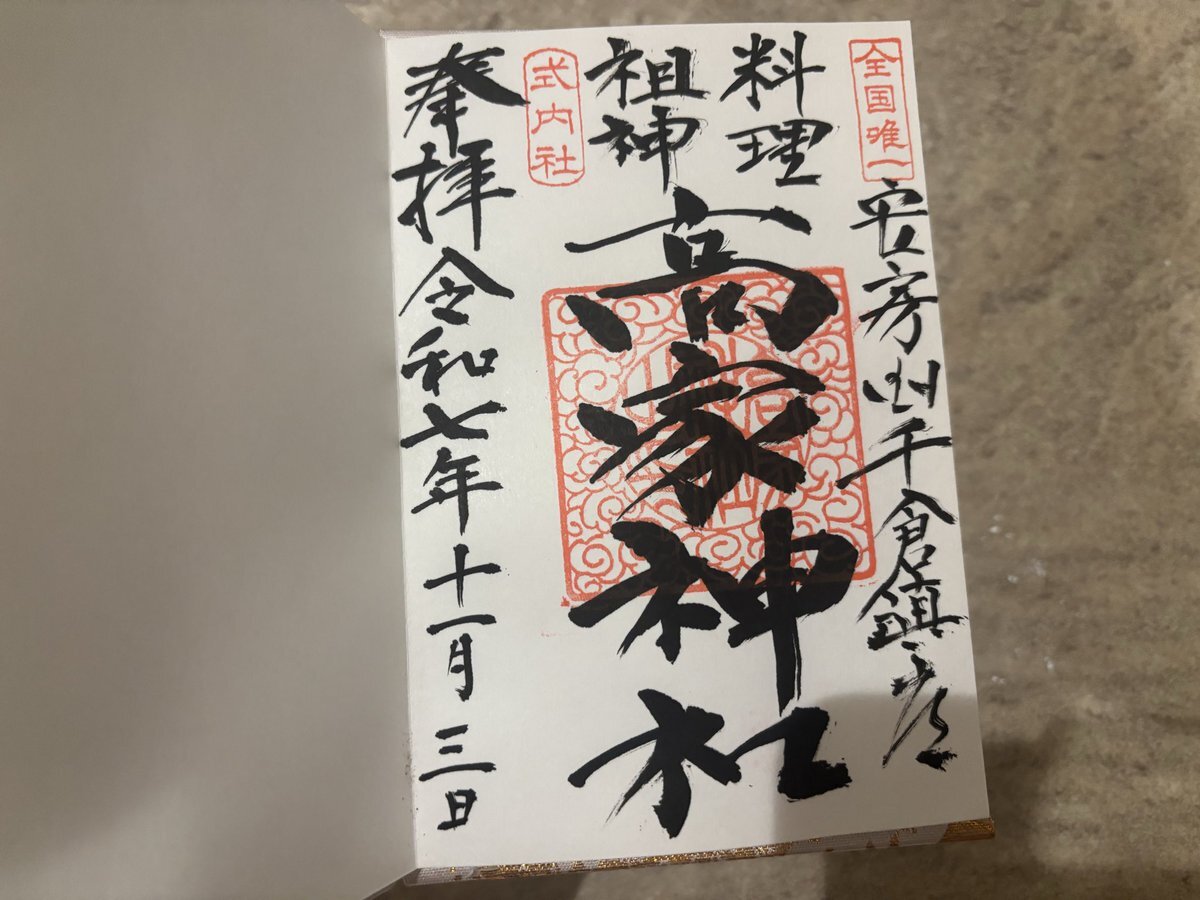 全国唯一
安房州千倉鎮
料理
祖神
高家神社
式内社
奉拝 令和七年十一月三日